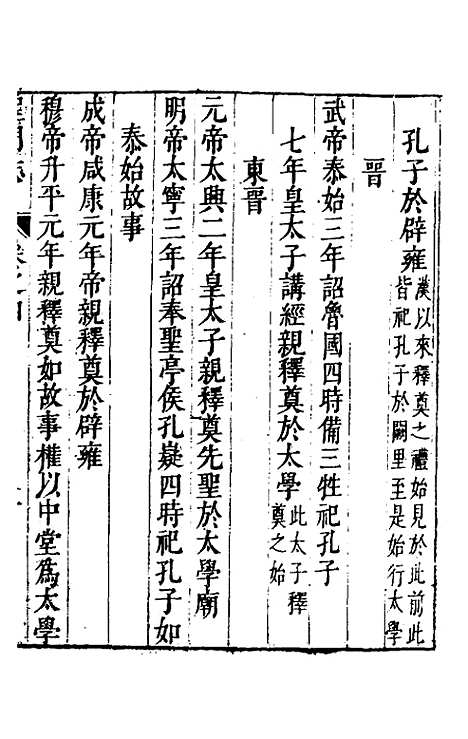 孔子於辟雍漢以來釋奠之禮始見於此前此
皆祀孔子於闕里至是始行太學
晉
武帝泰始三年詔魯國四時備三牲祀孔子
七年皇太子講經親釋奠於太學此太子釋
奠之始
東晉
元帝太興二年皇太子親釋奠先聖於太學廟
明帝太寧三年詔奉聖亭侯孔嶷四時祀孔子如
泰始故事
成帝咸康元年帝親釋奠於辟雍
穆帝升平元年親釋奠如故事權以中堂爲太學
卷之四